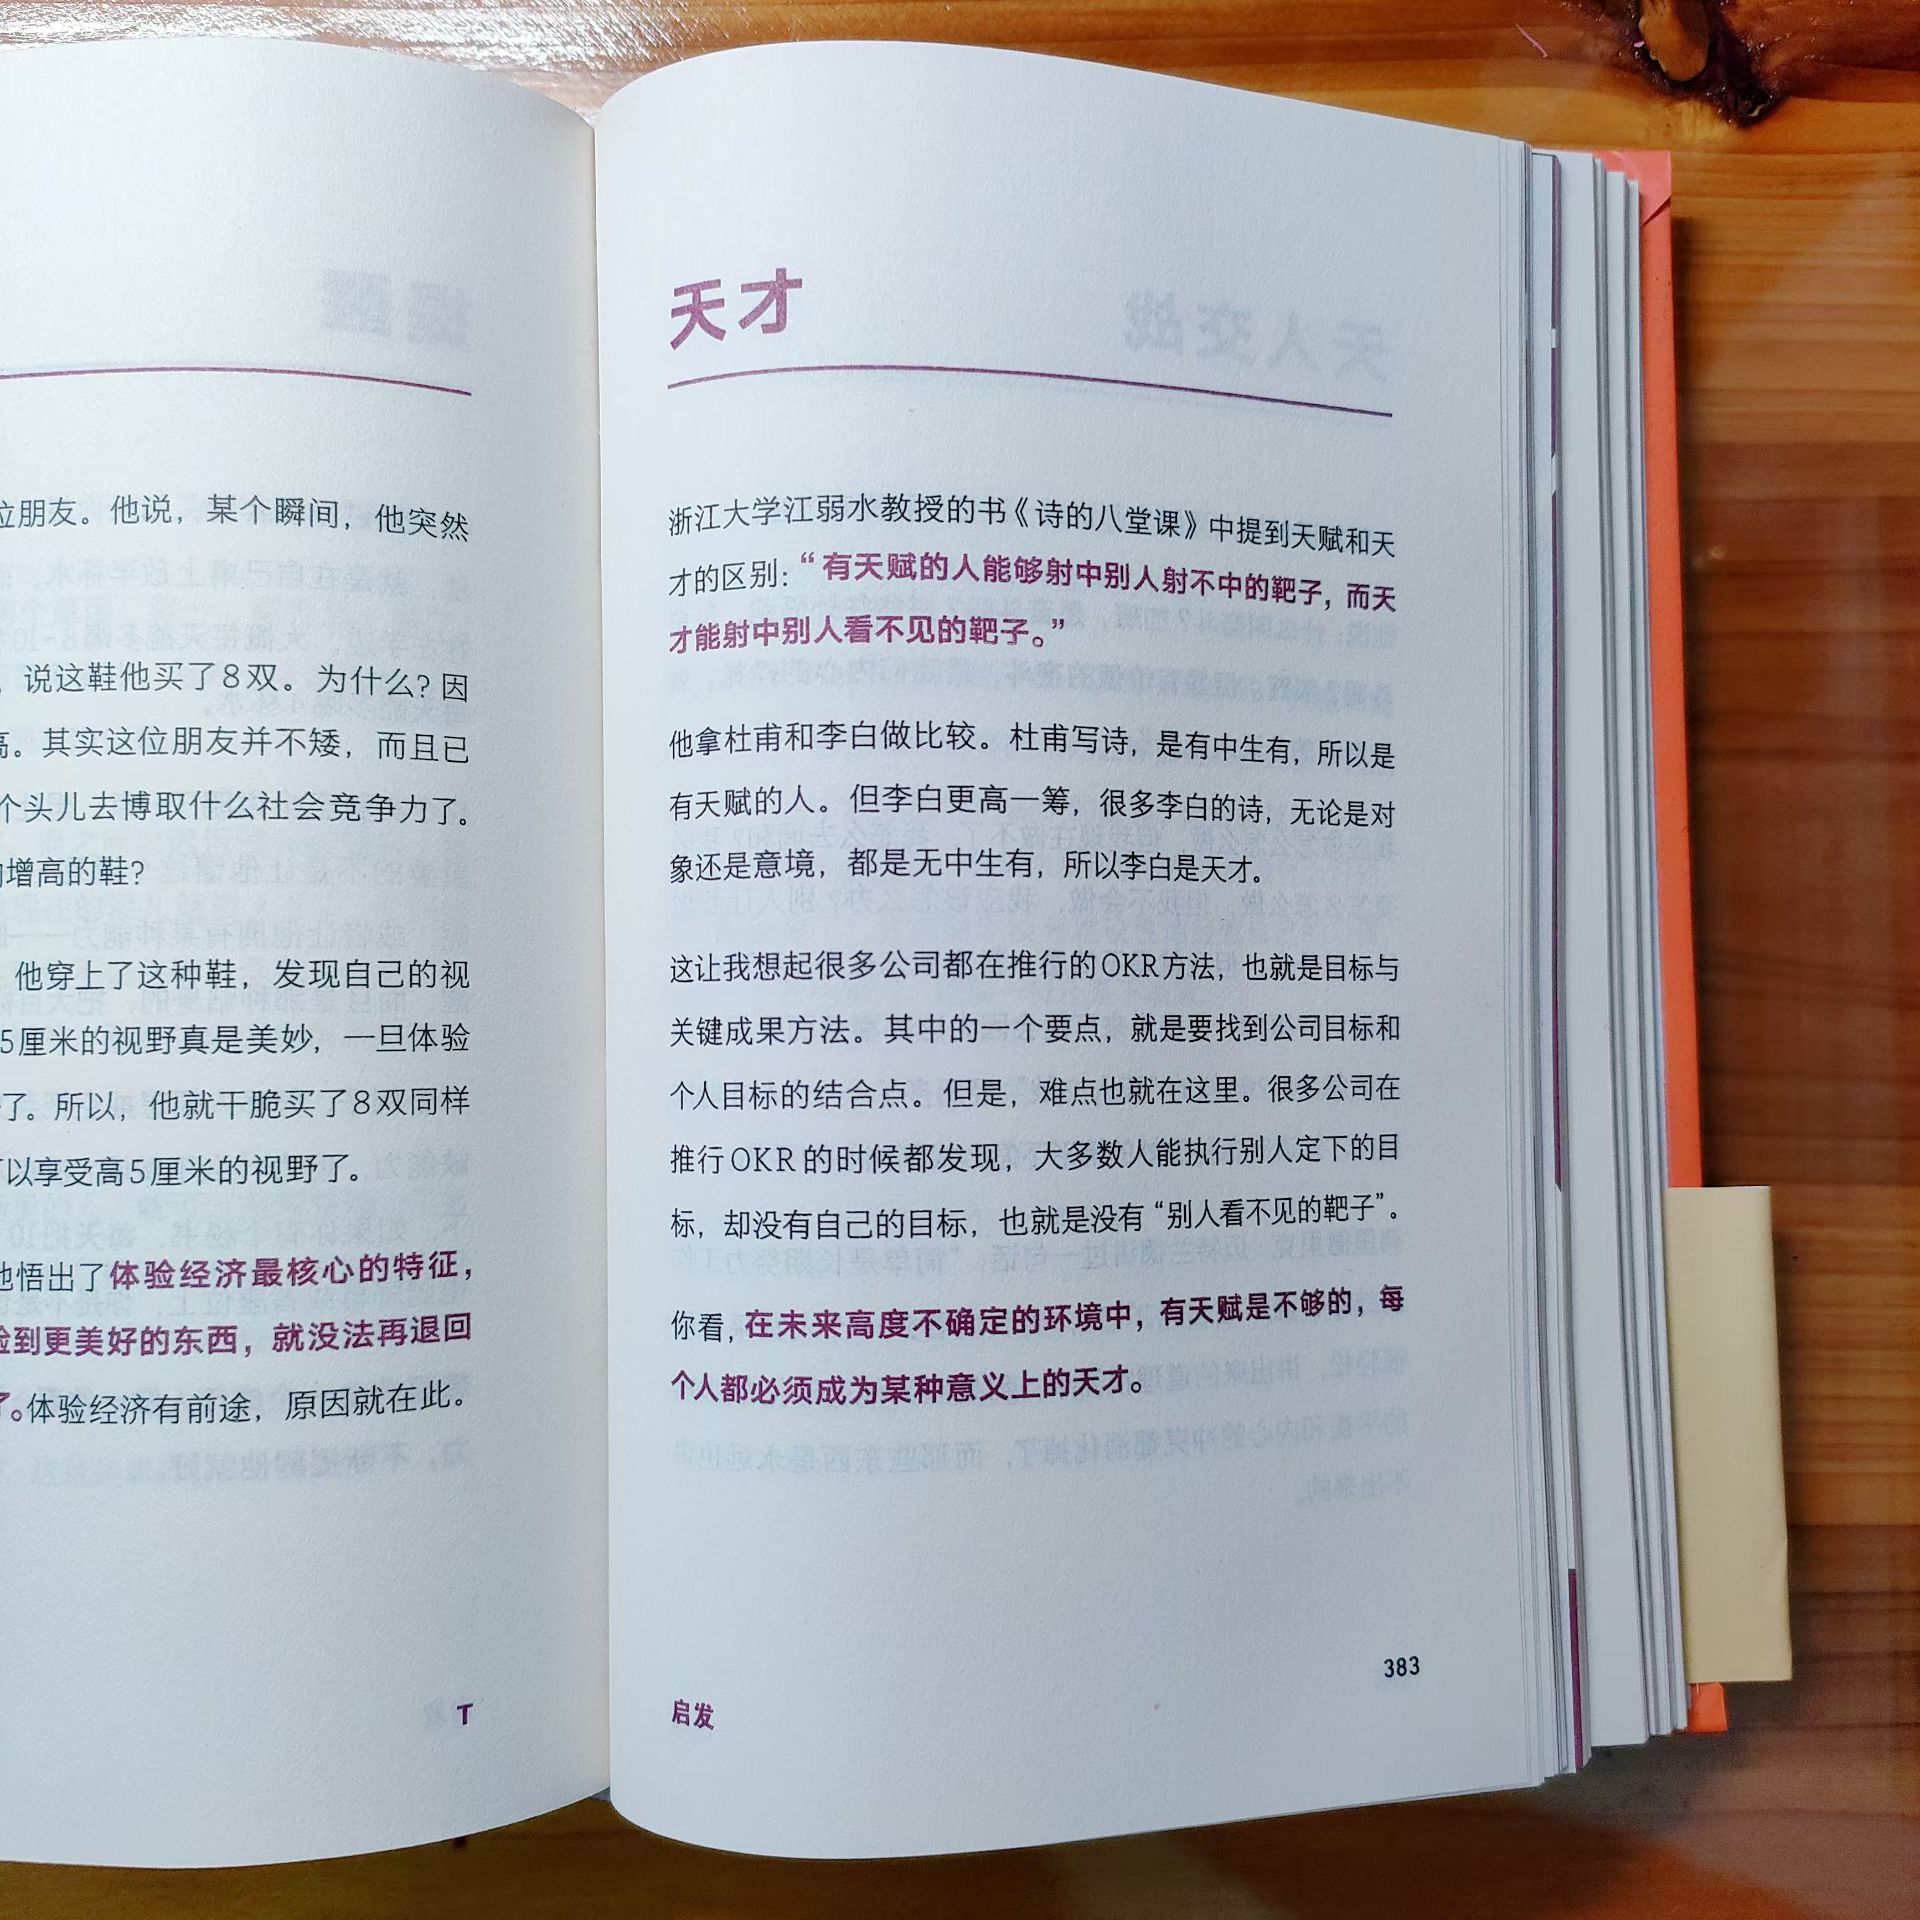 位朋友。他说，某个瞬间，他突然
，说这鞋他买了8双。为什么？因
高。其实这位朋友并不矮，而且已
个头儿去博取什么社会竞争力了。
增高的鞋？
他穿上了这种鞋，发现自己的视
5厘米的视野真是美妙，一旦体验
了。所以，他就干脆买了8双同样
以享受高5厘米的视野了。
他悟出了体验经济最核心的特征，
验到更美好的东西，就没法再退回
了。体验经济有前途，原因就在此。
T
天才
浙江大学江弱水教授的书《诗的八堂课》中提到天赋和天
才的区别：“有天赋的人能够射中别人射不中的靶子，而天
才能射中别人看不见的靶子。”
他拿杜甫和李白做比较。杜甫写诗，是有中生有，所以是
有天赋的人。但李白更高一筹，很多李白的诗，无论是对
象还是意境，都是无中生有，所以李白是天才。
这让我想起很多公司都在推行的OKR方法，也就是目标与
关键成果方法。其中的一个要点，就是要找到公司目标和
个人目标的结合点。但是，难点也就在这里。很多公司在
推行OKR的时候都发现，大多数人能执行别人定下的目
标，却没有自己的目标，也就是没有“别人看不见的靶子”。
你看，在未来高度不确定的环境中，有天赋是不够的，每
个人都必须成为某种意义上的天才。
383
启发